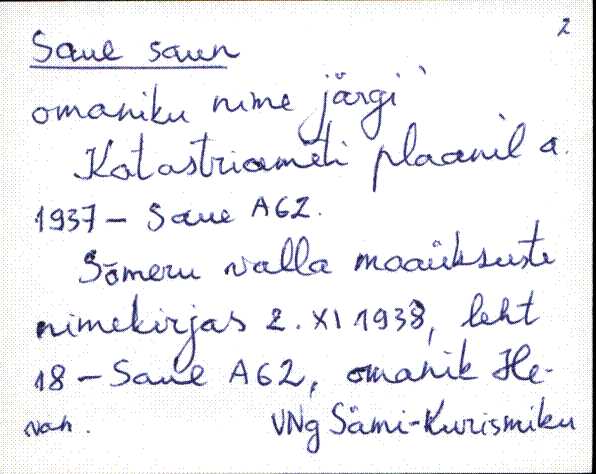 2
Saue saun
omaniku nime järgi
Katastriameti plaanil a.
1937 - Saue A62.
Sõmeru valla maaüksuste
nimekirjas 2. XI 1938, leht
18 - Saue A62, omanik He-
van. VNg Sämi-Kurismiku